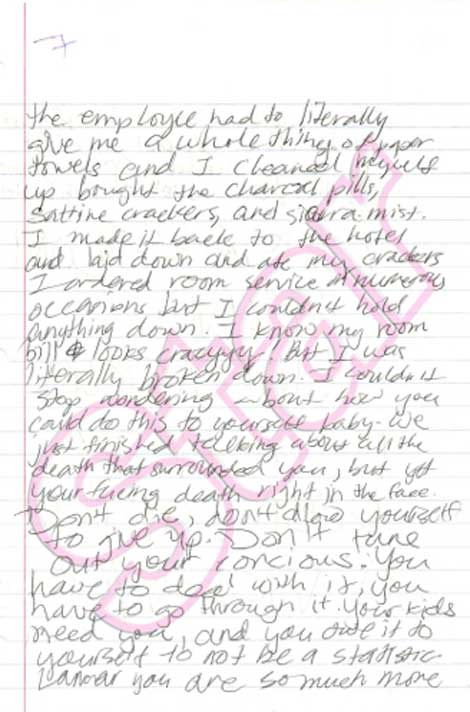 7
the employee had to literally
give me a whole thing of paper
towels and I cleaned myself
up bought the charcoal pills,
saltine crackers, and sierra mist.
I made it back to the hotel
and laid down and ate my crackers
I ordered room service on numerous
occasions but I couldn't hold
anything down. I know my room
bill looks crazyyy! But I was
literally broken down. I couldn't
stop wondering about how you
could do this to yourself baby. We
just finished talking about all the
death that surrounded you, but yet
your facing death right in the face.
Don't die, don't allow yourself
to give up. Don't tune
out your concious. You
have to deal with it, you
have to go through it. your kids
need you, and you owe it to
yourself to not be a statistic.
Lamar you are so much more
Star